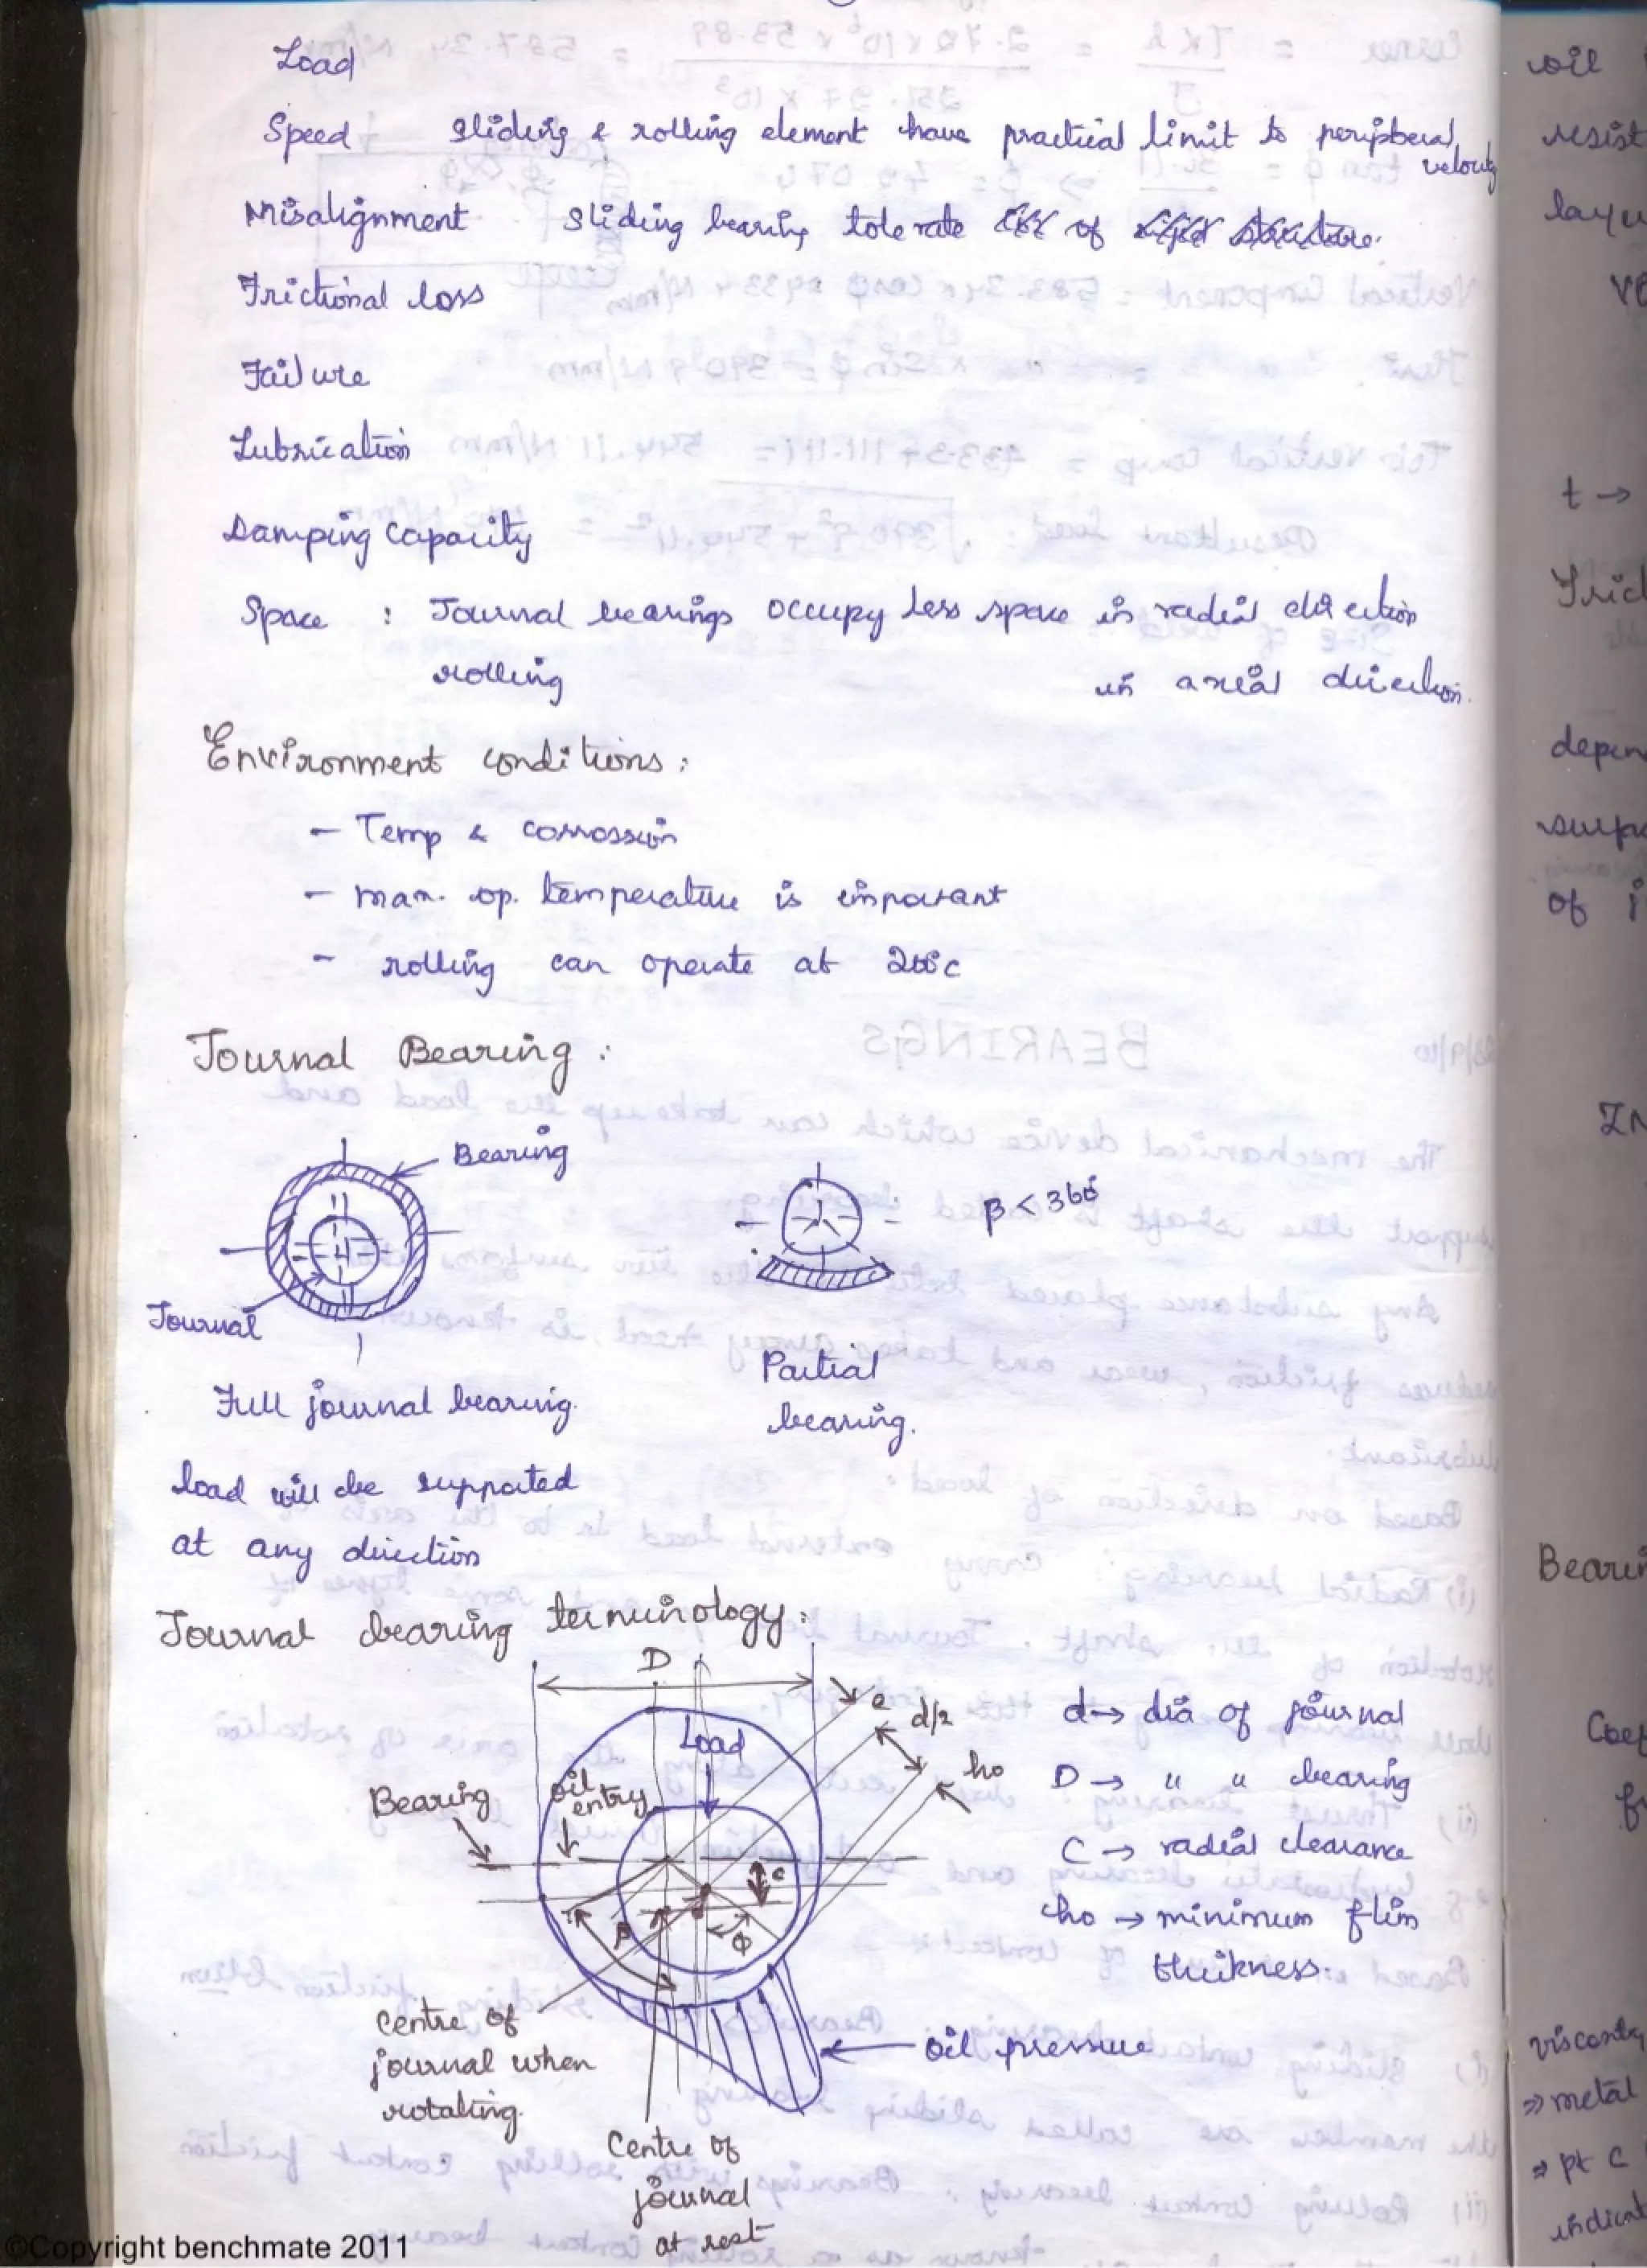 Load
Speed sliding & rolling element have practical limit to peripheral velocity
Misalignment sliding bearing tolerate of
Frictional loss
Failure
Lubrication
Damping capacity
Space : Journal bearings occupy less space in radial direction
rolling in axial direction.
Environment conditions :
- Temp & corrossion
- max. op. temperature is important
- rolling can operate at 200°c
Journal Bearing :
Bearing
β < 360°
Journal
Full journal bearing.
Partial
bearing.
load will be supported
at any direction
Journal bearing terminology :
D
e
d/2
ho
Load
Bearing
oil
entry
c
β
φ
d → dia of journal
D → " " bearing
C → radial clearance
ho → minimum flim
thickness.
Centre of
journal when
rotating.
oil pressure
Centre of
journal
at rest
©Copyright benchmate 2011
oil
resist
t →
depen
of
ZN
Bearin
Coef
viscosity
⇒ metal
⇒ pt C
indicat